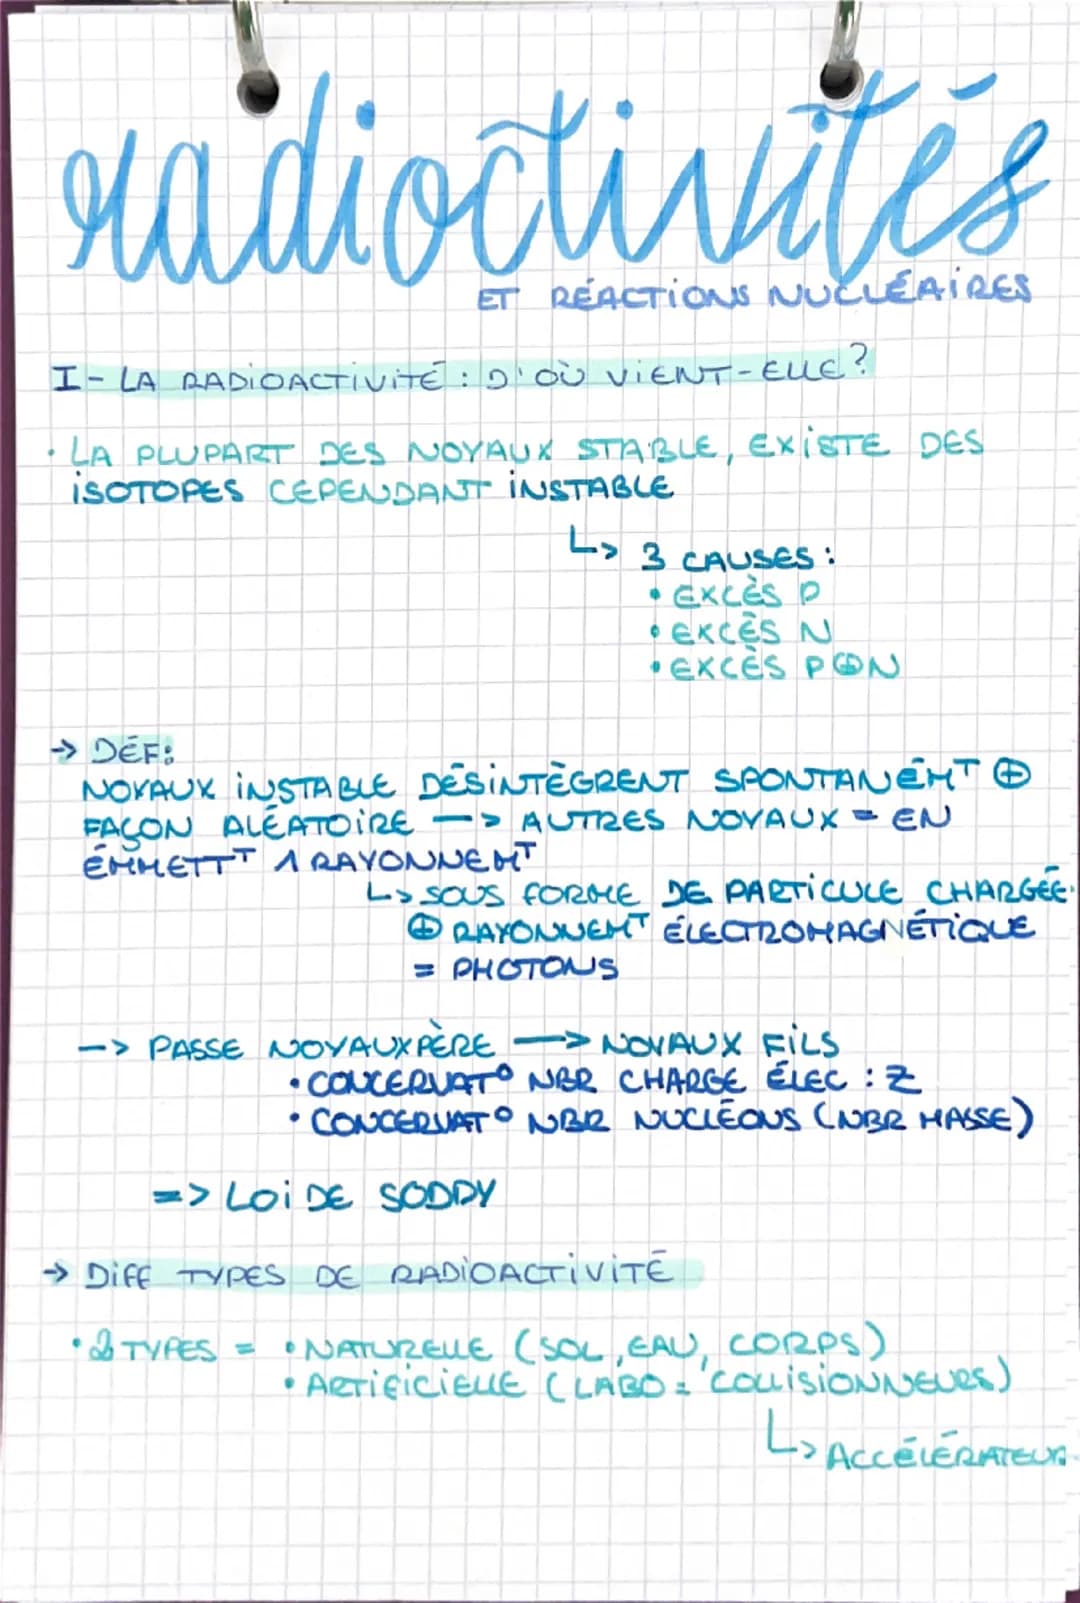 radioctivités
ET RÉACTIONS NUCLÉAIRES
I- LA RADIOACTIVITÉ : D'OÙ VIENT-ELLE ?
• LA PLUPART DES NOYAUX STABLE, EXISTE DES
ISOTOPES CEPENDANT INSTABLE
↳ 3 CAUSES :
• EXCÈS P
• EXCÈS N
• EXCÈS P⊕N
→ DÉF:
NOYAUX INSTABLE DÉSINTÈGRENT SPONTANÉMᵀ ⊕
FAÇON ALÉATOIRE —> AUTRES NOYAUX = EN
ÉMMETTᵀ 1 RAYONNEMᵀ
↳ SOUS FORME DE PARTICULE CHARGÉE
⊕ RAYONNEMᵀ ÉLECTROMAGNÉTIQUE
= PHOTONS
—> PASSE NOYAUX PÈRE —> NOYAUX FILS
• CONCERVAT° NBR CHARGE ÉLEC : Z
• CONCERVAT° NBR NUCLÉONS (NBR MASSE)
=> LOI DE SODDY
→ DIFF TYPES DE RADIOACTIVITÉ
• 2 TYPES = • NATURELLE (SOL, EAU, CORPS)
• ARTIFICIELLE (LABO = COLLISIONNEURS)
↳ ACCÉLÉRATEUR